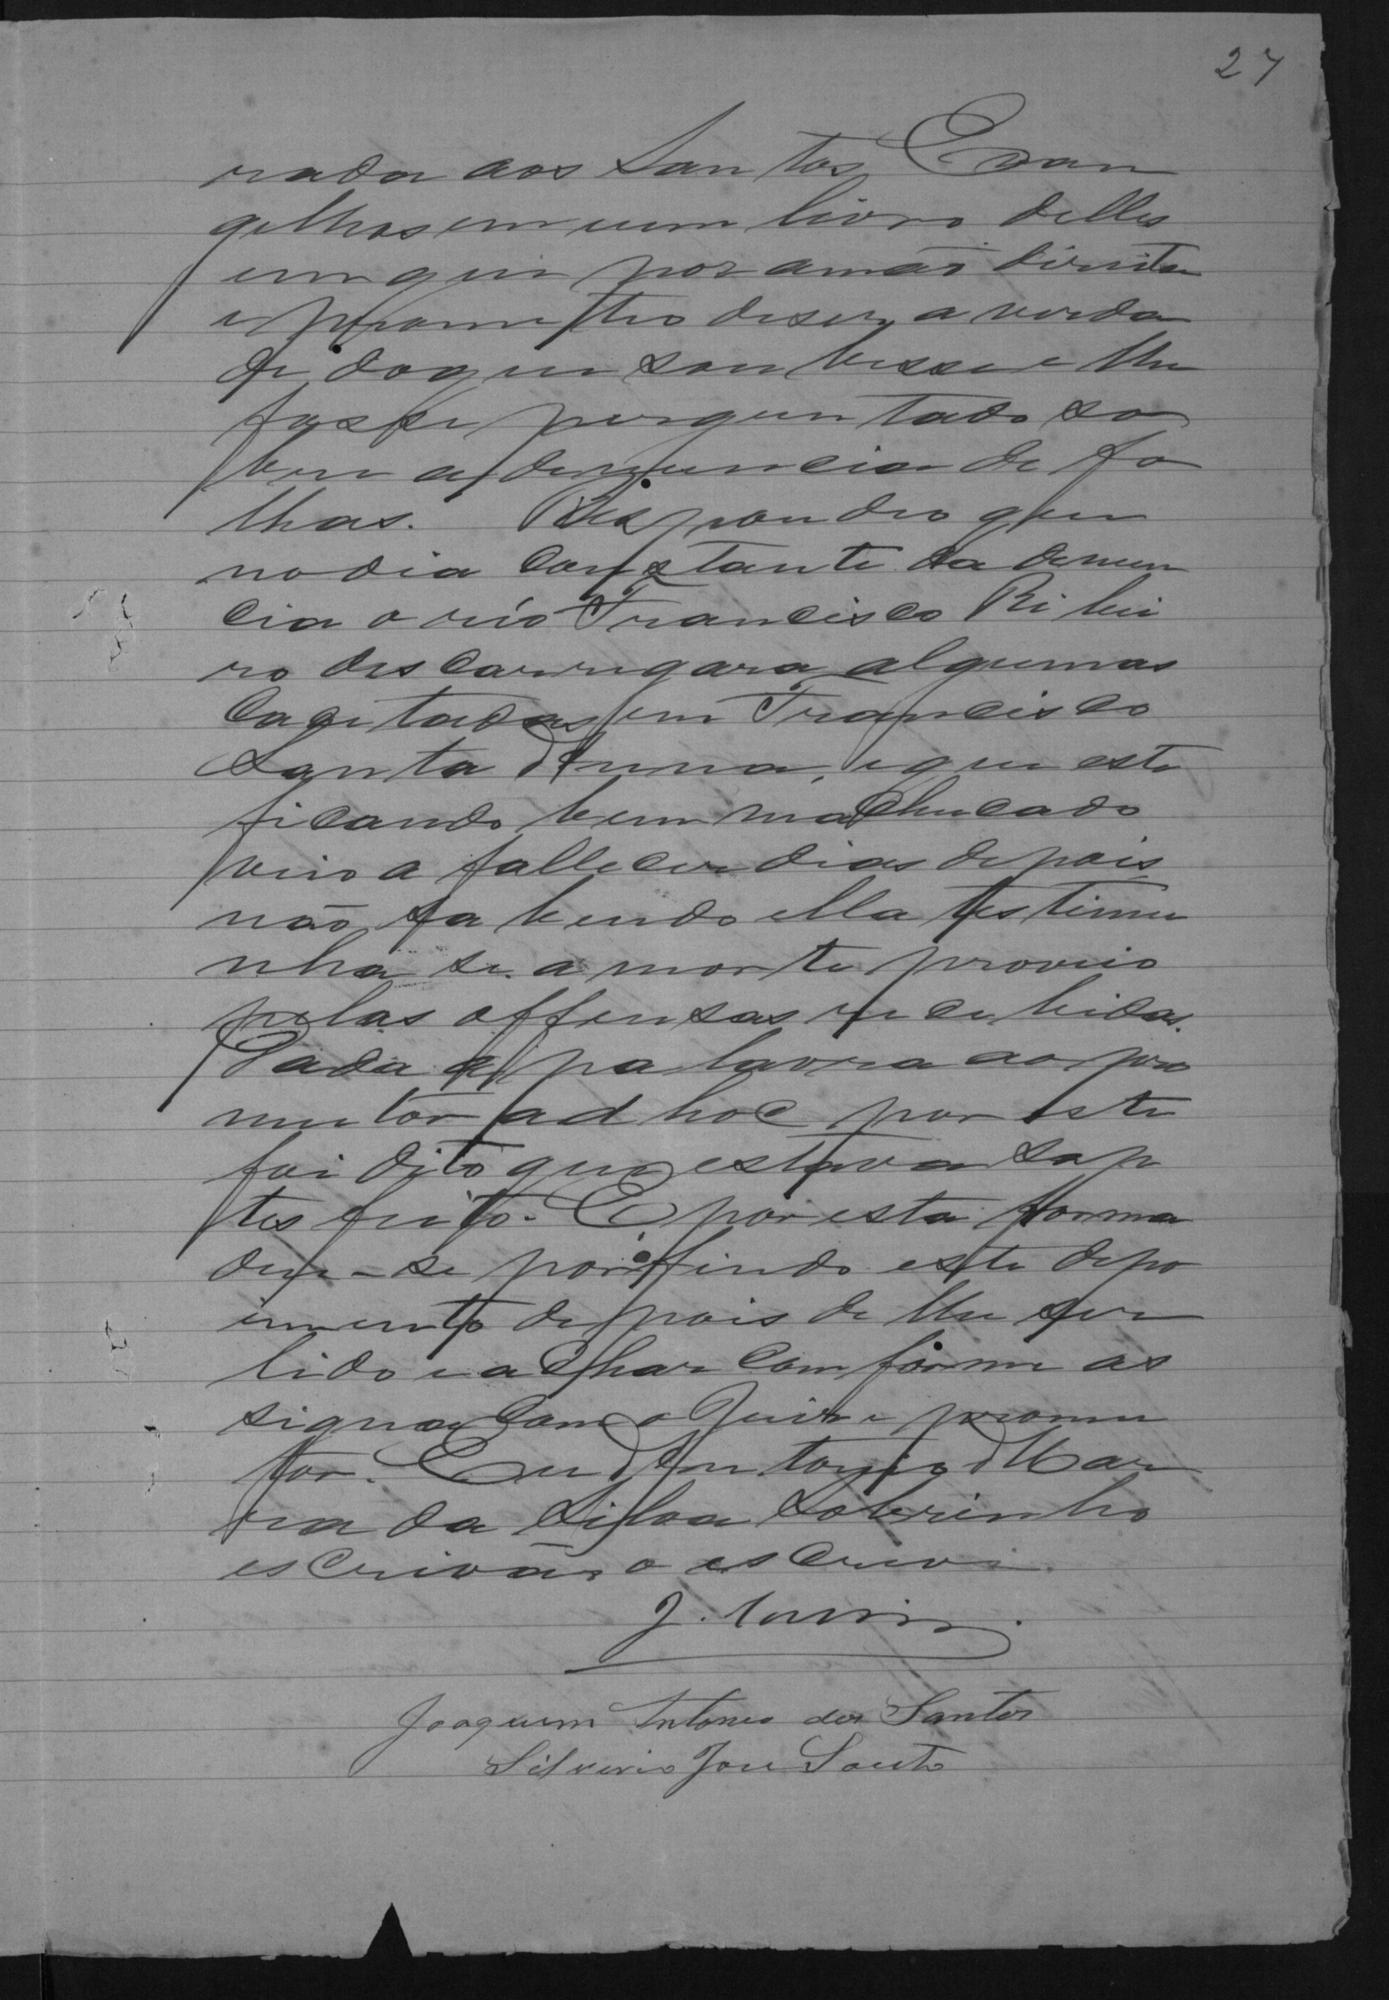 27
rada aos Santos Evan
gelhos em um livro delles
em que pos a mão direita
e prometteo diser a verda
de do que soubesse e lhe
fosse perguntado so
bre a denuncia de fo
lhas. Respondeo que
no dia constante da denun
cia o réo Francisco Ribei
ro descarregara algumas
cacetadas em Francisco
Santa Anna, e que este
ficando bem machucado
veio a fallecer dias depois
não sabendo ella testimu
nha se a morte proveio
pelas offensas recebidas.
Dada a palavra ao pro
mutor ad hoc por este
foi dito que estava sa
tesfeito. E por esta forma
deu-se por findo este depo
imento depois de lhe ser
lido e achar conforme as
signa com o Juiz e promu
tor. Eu Antonio Mar
ia da Silva Sobrinho
escrivão o escrevi.
J.
Joaquim Antonio dos Santos
Silverio Jose Souto